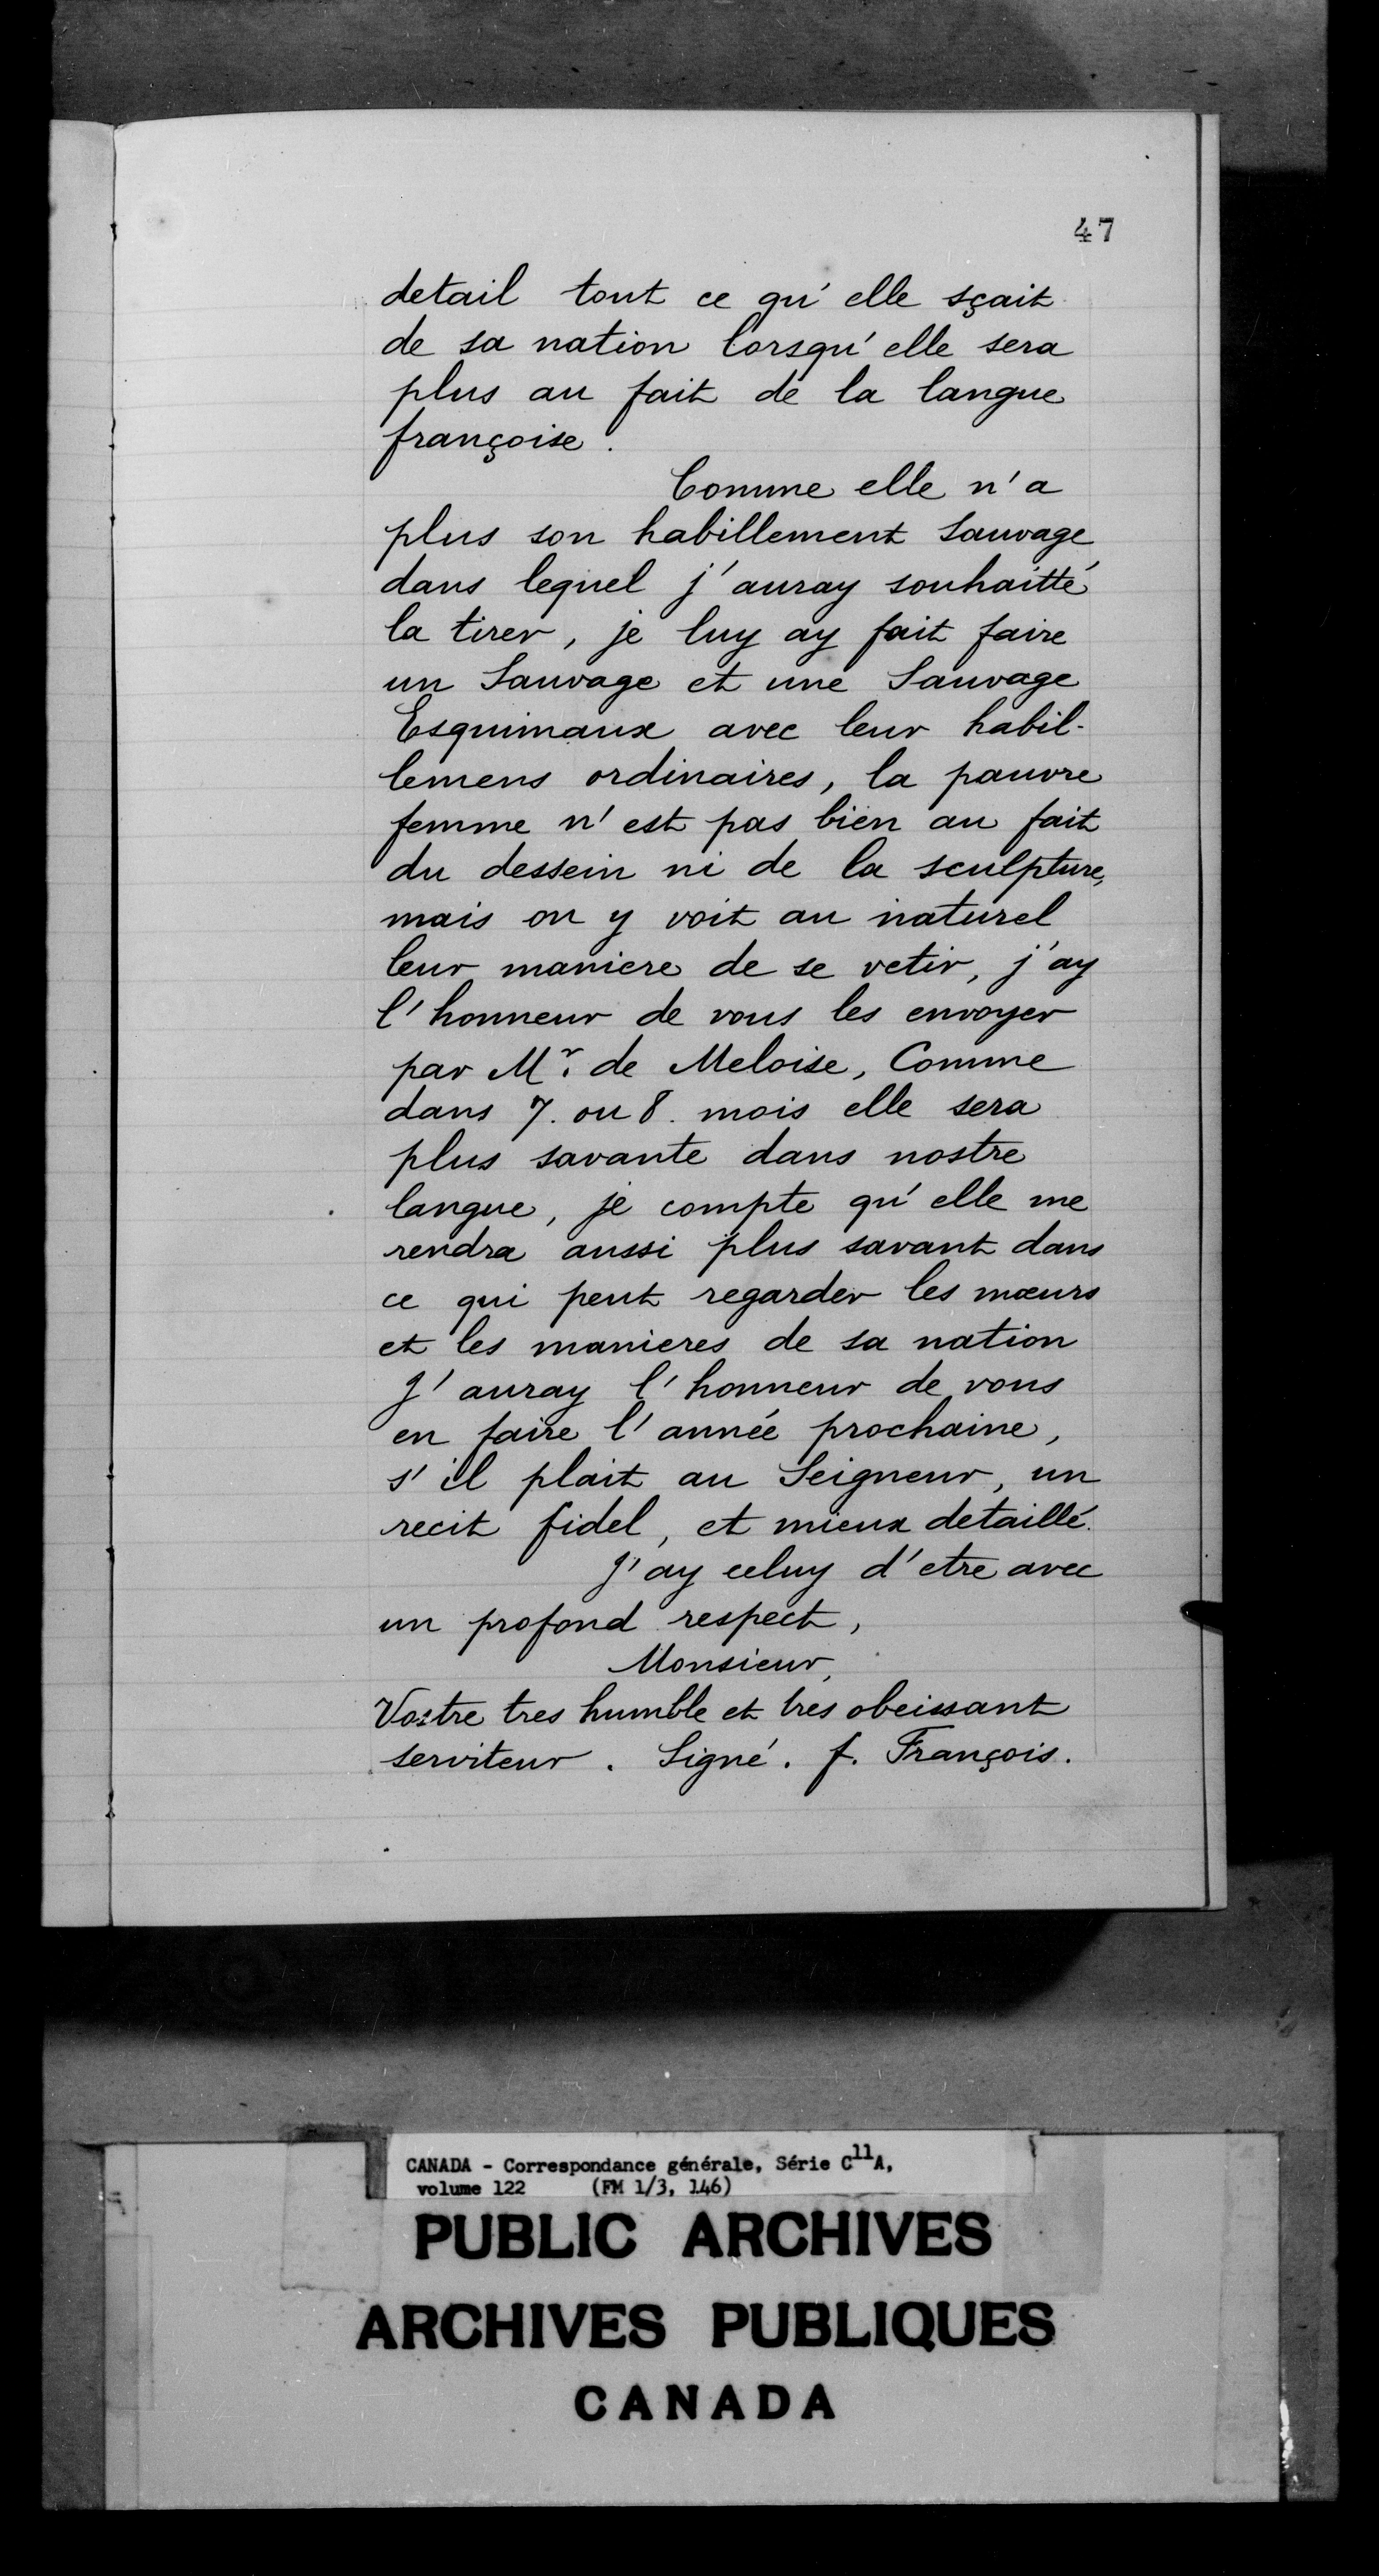 47
detail tout ce qu'elle sçait
de sa nation lorsqu'elle sera
plus au fait de la langue
françoise.
Comme elle n'a
plus son habillement Sauvage
dans lequel j'auray souhaitté
la tirer, je luy ay fait faire
un Sauvage et une Sauvage
Esquimaux avec leur habil-
lemens ordinaires, la pauvre
femme n'est pas bien au fait
du dessein ni de la sculpture,
mais on y voit au naturel
leur maniere de se vetir, j'ay
l'honneur de vous les envoyer
par Mr. de Meloise, Comme
dans 7. ou 8. mois elle sera
plus savante dans nostre
langue, je compte qu'elle me
rendra aussi plus savant dans
ce qui peut regarder les mœurs
et les manieres de sa nation
J'auray l'honneur de vous
en faire l'année prochaine,
s'il plait au Seigneur, un
recit fidel, et mieux detaillé.
J'ay celuy d'etre avec
un profond respect,
Monsieur,
Vostre tres humble et tres obeissant
serviteur. Signé. f. François.
CANADA - Correspondance générale, Série C11A,
volume 122 (FM 1/3, 146)
PUBLIC ARCHIVES
ARCHIVES PUBLIQUES
CANADA